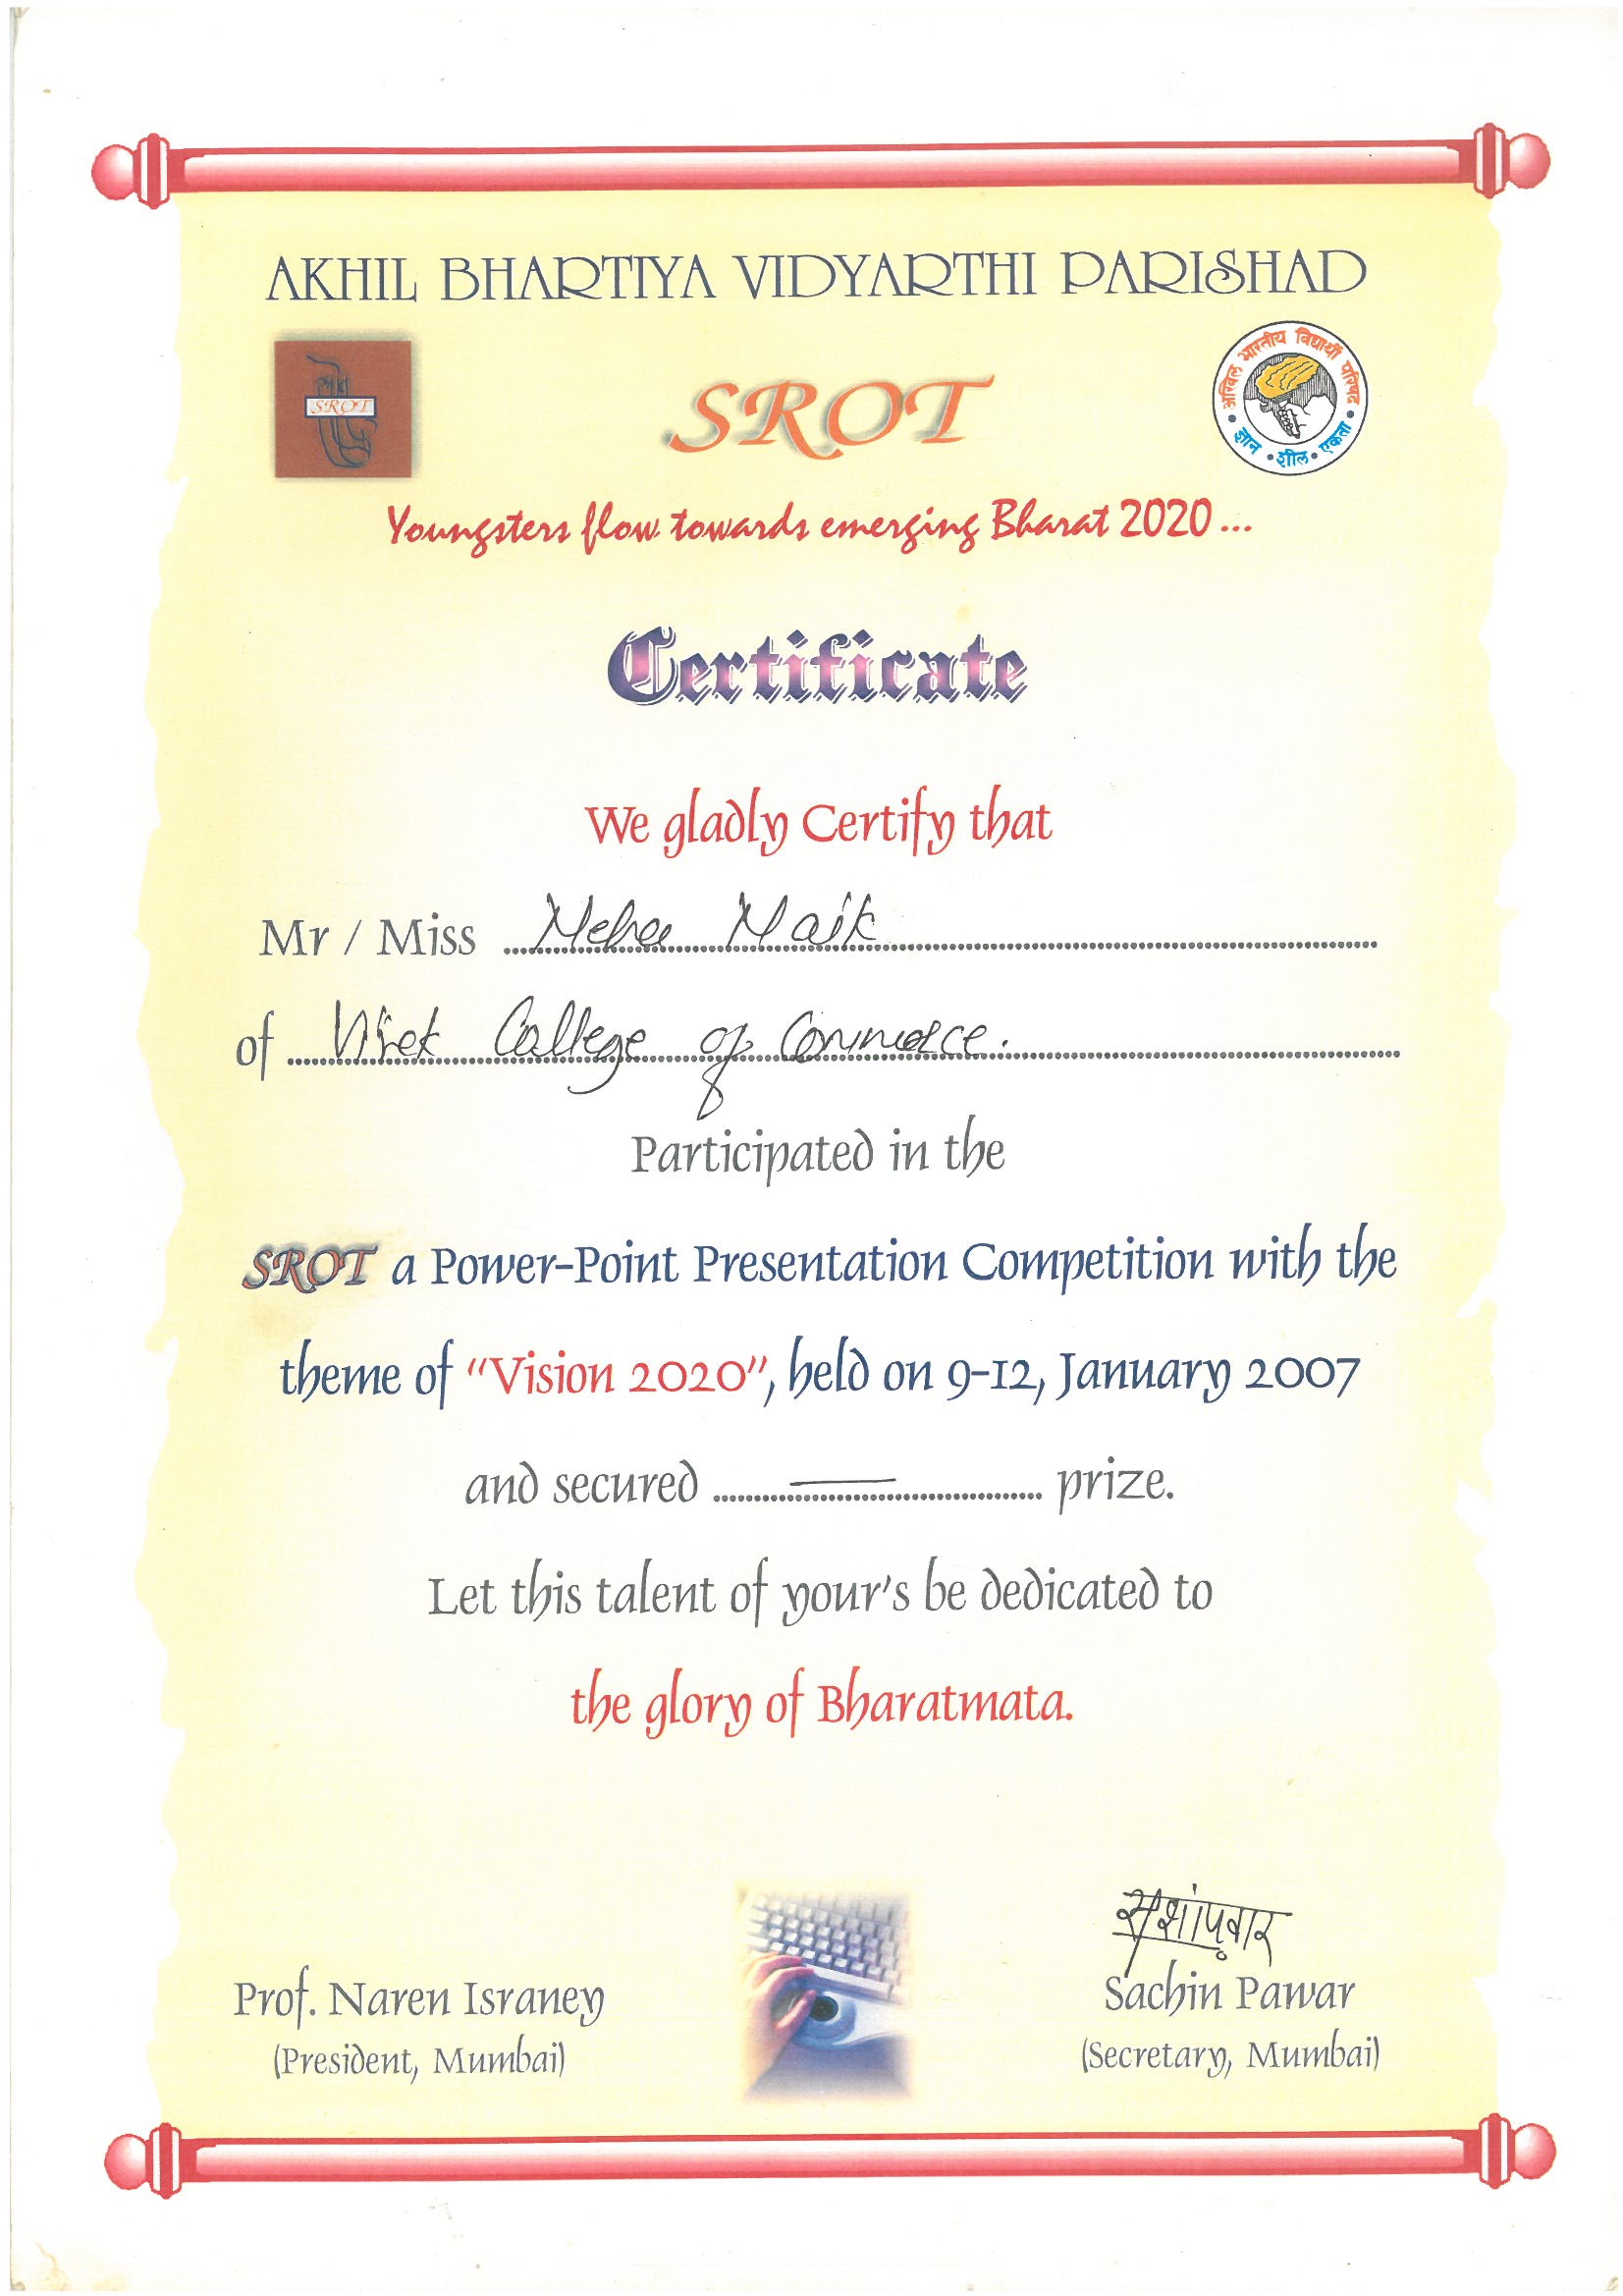 AKHIL BHARTIYA VIDYARTHI PARISHAD
SROT
SROT
अखिल भारतीय विद्यार्थी परिषद
ज्ञान • शील • एकता
Youngsters flow towards emerging Bharat 2020 ...
Certificate
We gladly Certify that
Mr / Miss Neha Naik
of Vivek College of Commerce.
Participated in the
SROT a Power-Point Presentation Competition with the
theme of “Vision 2020”, held on 9-12, January 2007
and secured — prize.
Let this talent of your's be dedicated to
the glory of Bharatmata.
Prof. Naren Israney
(President, Mumbai)
Sachin Pawar
(Secretary, Mumbai)